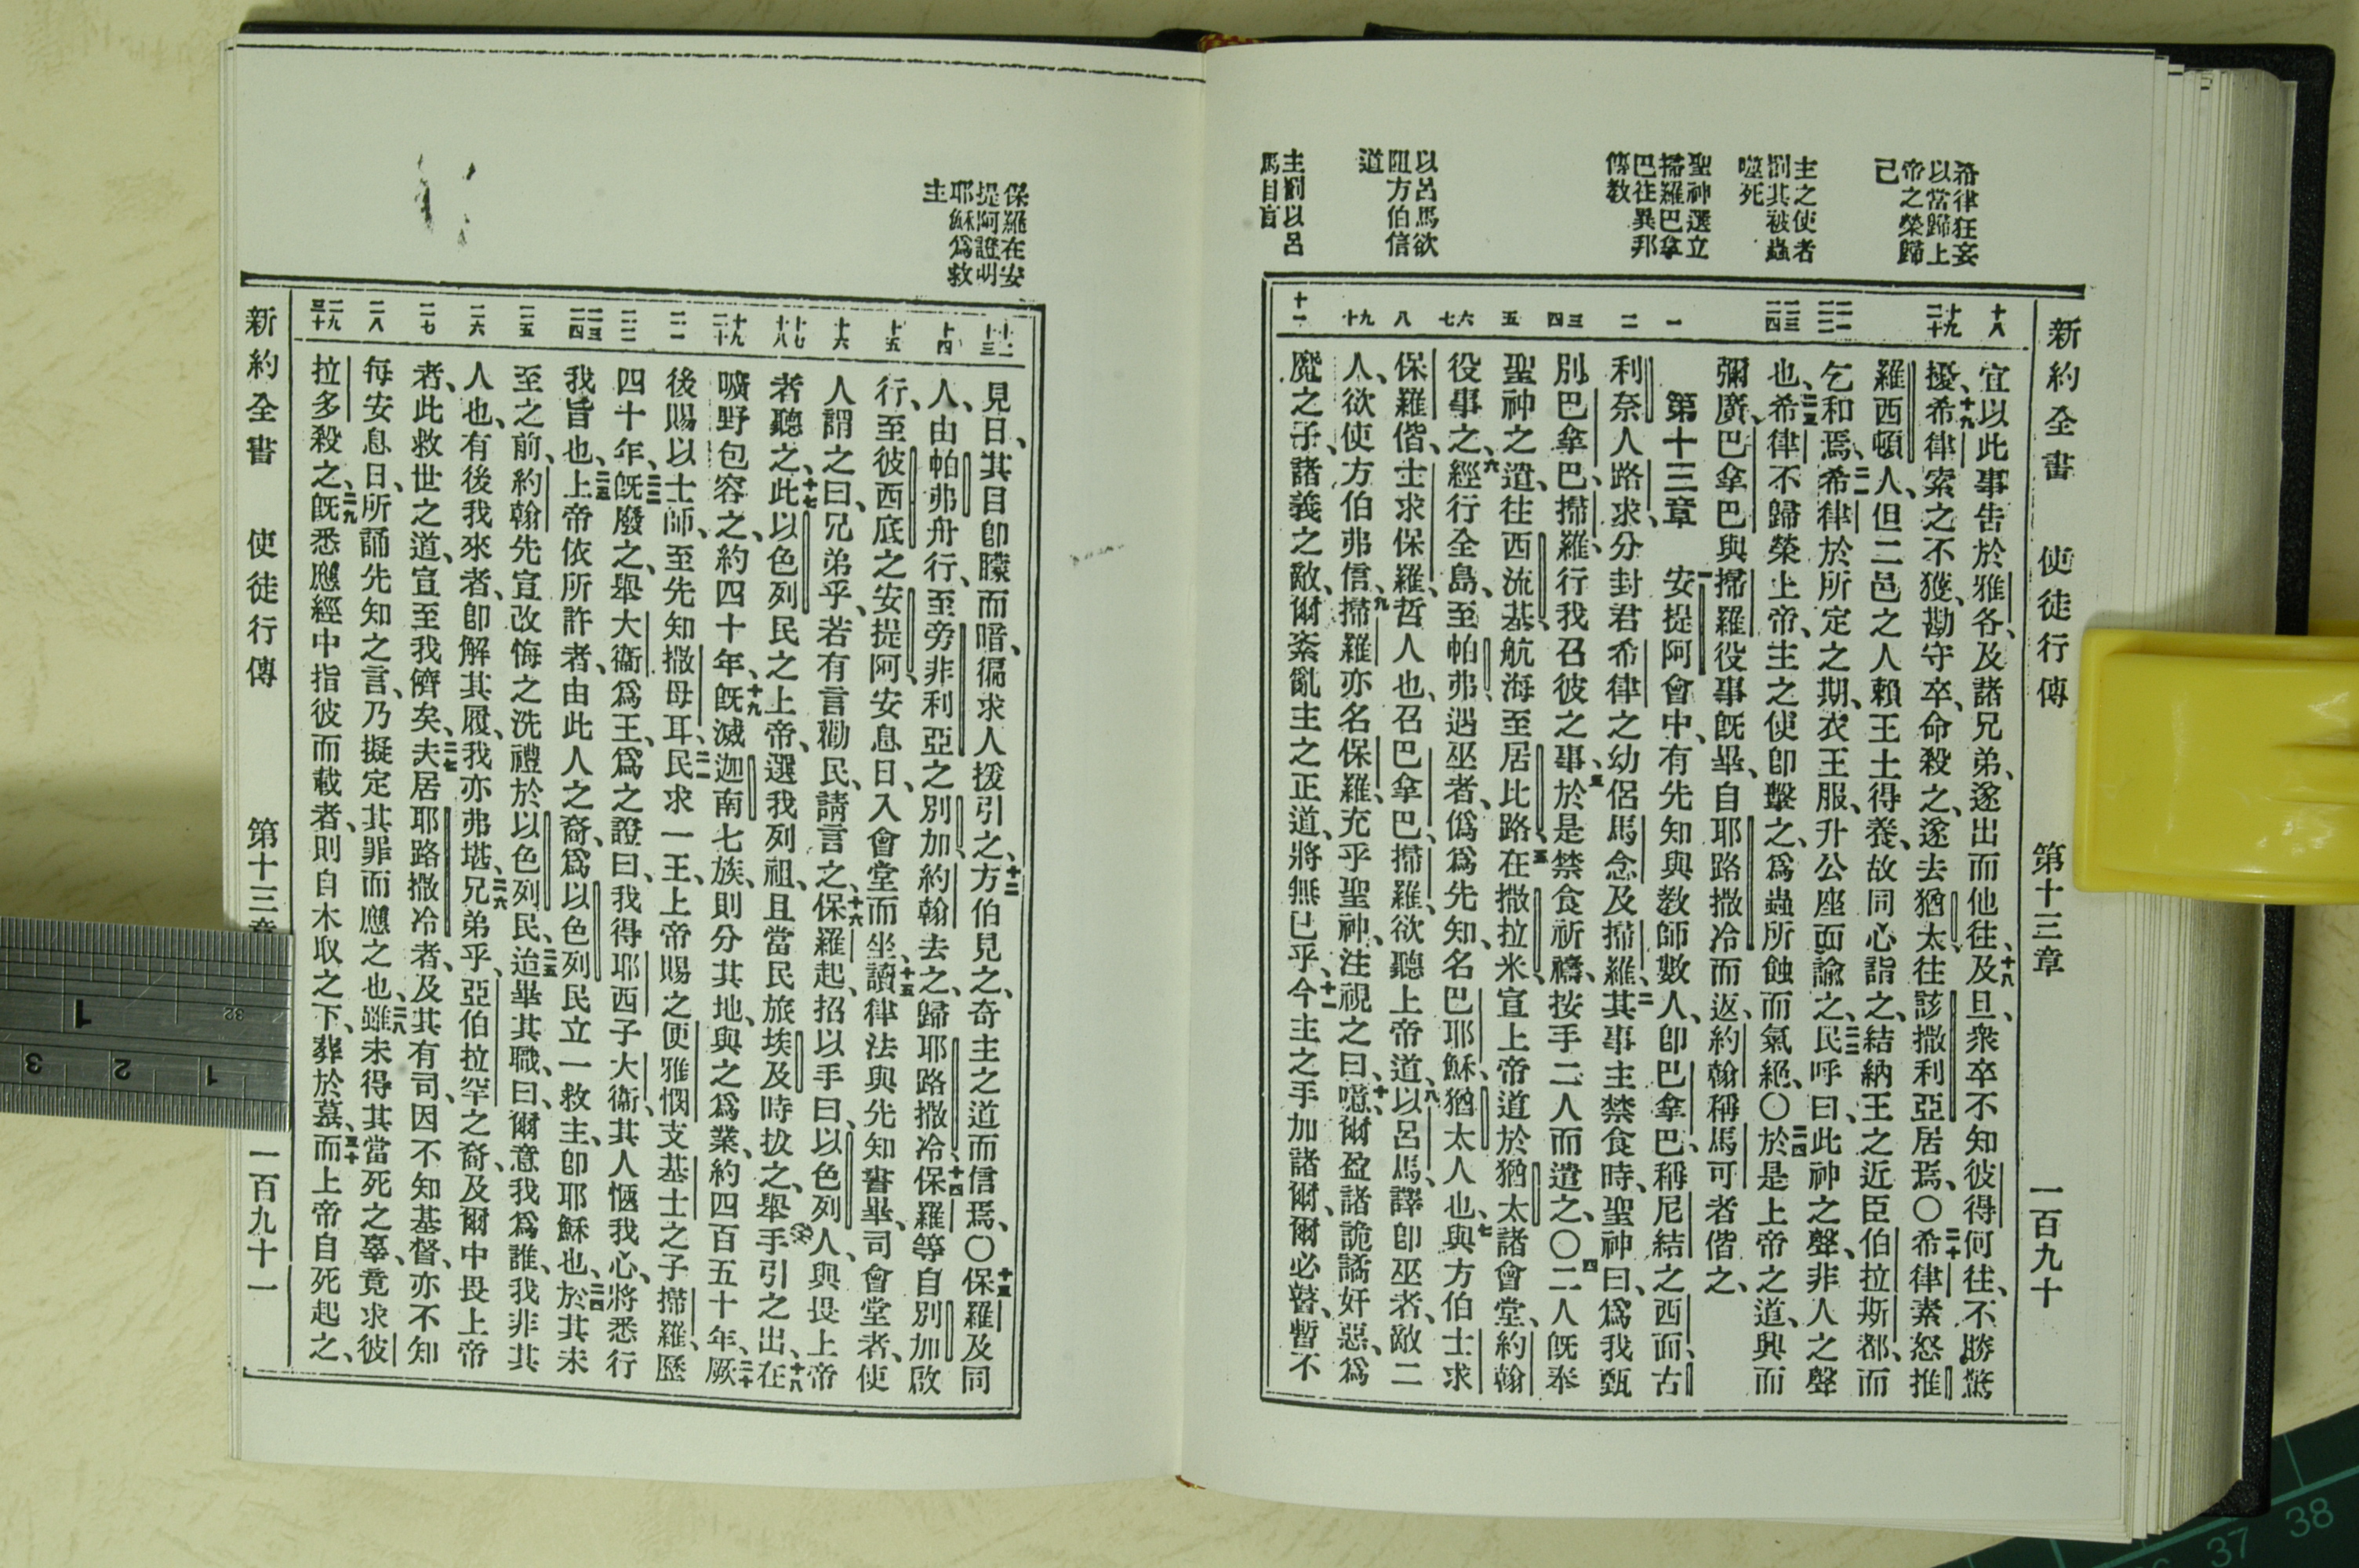 新約全書 使徒行傳 第十三章 一百九十
希律狂妄
以當歸上
帝之榮歸
己
主之使者
罰其被蟲
噬死
聖神選立
掃羅巴拿
巴往異邦
傳教
以呂馬欲
阻方伯信
道
主罰以呂
馬目盲
十八
十九 二十
二一 二二
二三 二四
一
二
三 四
五
六 七
八
九 十
十一
宜以此事告於雅各、及諸兄弟、遂出而他往、十八及旦、衆卒不知彼得何往、不勝驚
擾、十九希律索之不獲、勘守卒、命殺之、遂去猶太、往該撒利亞居焉、〇二十希律素怒推
羅西頓人、但二邑之人賴王土得養、故同心詣之、結納王之近臣伯拉斯都、而
乞和焉、二一希律於所定之期、衣王服、升公座面諭之、二二民呼曰、此神之聲、非人之聲
也、二三希律不歸榮上帝、主之使卽擊之、爲蟲所蝕而氣絕、〇二四於是上帝之道、興而
彌廣、二五巴拿巴與掃羅役事旣畢、自耶路撒冷而返、約翰稱馬可者偕之、
第十三章 一安提阿會中、有先知與敎師數人、卽巴拿巴、稱尼結之西面、古
利奈人路求、分封君希律之幼侶馬念、及掃羅、二其事主禁食時、聖神曰、爲我甄
別巴拿巴、掃羅、行我召彼之事、三於是禁食祈禱、按手二人而遣之、〇四二人旣奉
聖神之遣、往西流基、航海至居比路、五在撒拉米、宣上帝道於猶太諸會堂、約翰
役事之、六經行全島、至帕弗、遇巫者、僞爲先知、名巴耶穌、猶太人也、七與方伯士求
保羅偕、士求保羅、哲人也、召巴拿巴、掃羅、欲聽上帝道、八以呂馬、譯卽巫者、敵二
人、欲使方伯弗信、九掃羅亦名保羅、充乎聖神、注視之曰、十噫、爾盈諸詭譎奸惡、爲
魔之子、諸義之敵、爾紊亂主之正道、將無已乎、十一今主之手加諸爾、爾必瞽、暫不
保羅在安
提阿證明
耶穌爲救
主
十二 十三
十四
十五
十六
十七 十八
十九 二十
二一
二二
二三 二四
二五
二六
二七
二八
二九 三十
見日、其目卽矇而暗、徧求人援引之、十二方伯見之、奇主之道而信焉、〇十三保羅及同
人、由帕弗舟行、至旁非利亞之別加、約翰去之、歸耶路撒冷、十四保羅等自別加啟
行、至彼西底之安提阿、安息日、入會堂而坐、十五讀律法與先知書畢、司會堂者、使
人謂之曰、兄弟乎、若有言勸民、請言之、十六保羅起、招以手曰、以色列人、與畏上帝
者聽之、十七此以色列民之上帝、選我列祖、且當民旅埃及時拔之、舉手引之出、十八在
曠野包容之、約四十年、十九旣滅迦南七族、則分其地、與之爲業、約四百五十年、二十厥
後賜以士師、至先知撒母耳、二一民求一王、上帝賜之便雅憫支、基士之子掃羅、歷
四十年、二二旣廢之、舉大衞爲王、爲之證曰、我得耶西子大衞、其人愜我心、將悉行
我旨也、二三上帝依所許者、由此人之裔、爲以色列民立一救主、卽耶穌也、二四於其未
至之前、約翰先宣改悔之洗禮於以色列民、二五迨畢其職、曰、爾意我爲誰、我非其
人也、有後我來者、卽解其履、我亦弗堪、二六兄弟乎、亞伯拉罕之裔、及爾中畏上帝
者、此救世之道、宣至我儕矣、二七夫居耶路撒冷者、及其有司、因不知基督、亦不知
每安息日、所誦先知之言、乃擬定其罪而應之也、二八雖未得其當死之辜、竟求彼
拉多殺之、二九旣悉應經中指彼而載者、則自木取之下、葬於墓、三十而上帝自死起之、
新約全書 使徒行傳 第十三章 一百九十一
1
32
1 2 3
37 38